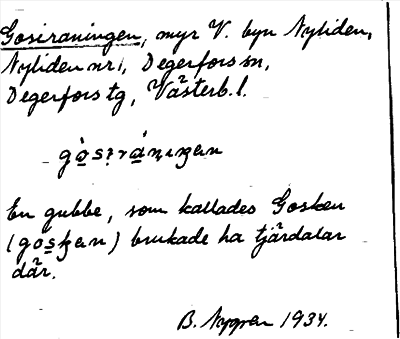 Gosiraningen, myr V. byn Nyliden,
Nyliden nr 1, Degerfors sn,
Degerfors tg, Västerb. l.
En gubbe, som kallades Gosken
brukade ha tjärdalar
där.
B. Nygren 1934.